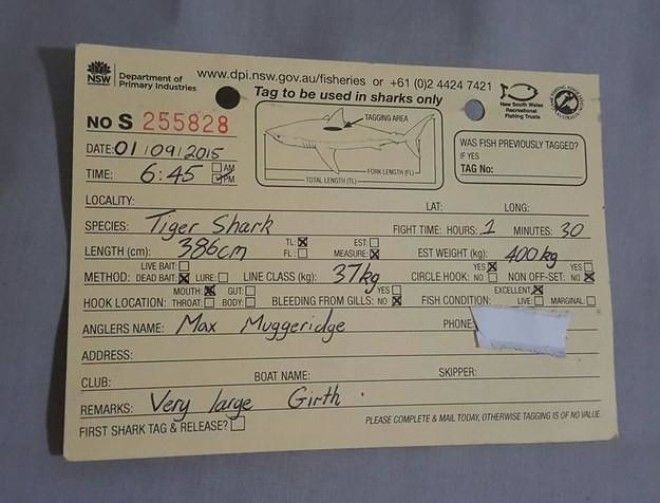 NSW Department of Primary Industries www.dpi.nsw.gov.au/fisheries or +61 (0)2 4424 7421 New South Wales Recreational Fishing Trusts
Tag to be used in sharks only
NO S 255828
TAGGING AREA
FORK LENGTH (FL)
TOTAL LENGTH (TL)
WAS FISH PREVIOUSLY TAGGED?
IF YES
TAG No:
DATE: 01/09/2015
TIME: 6:45 AM PM
LOCALITY: LAT: LONG:
SPECIES: Tiger Shark FIGHT TIME: HOURS: 1 MINUTES: 30
LENGTH (cm): 386cm TL: FL: EST: MEASURE EST WEIGHT (kg): 400kg
METHOD: LIVE BAIT: DEAD BAIT: LURE: LINE CLASS (kg): 37kg CIRCLE HOOK: YES NO NON OFF-SET: YES NO
HOOK LOCATION: MOUTH: THROAT: GUT: BODY: BLEEDING FROM GILLS: YES NO FISH CONDITION: EXCELLENT LIVE MARGINAL
ANGLERS NAME: Max Muggeridge PHONE:
ADDRESS:
CLUB: BOAT NAME: SKIPPER:
REMARKS: Very large Girth.
FIRST SHARK TAG & RELEASE? PLEASE COMPLETE & MAIL TODAY, OTHERWISE TAGGING IS OF NO VALUE.